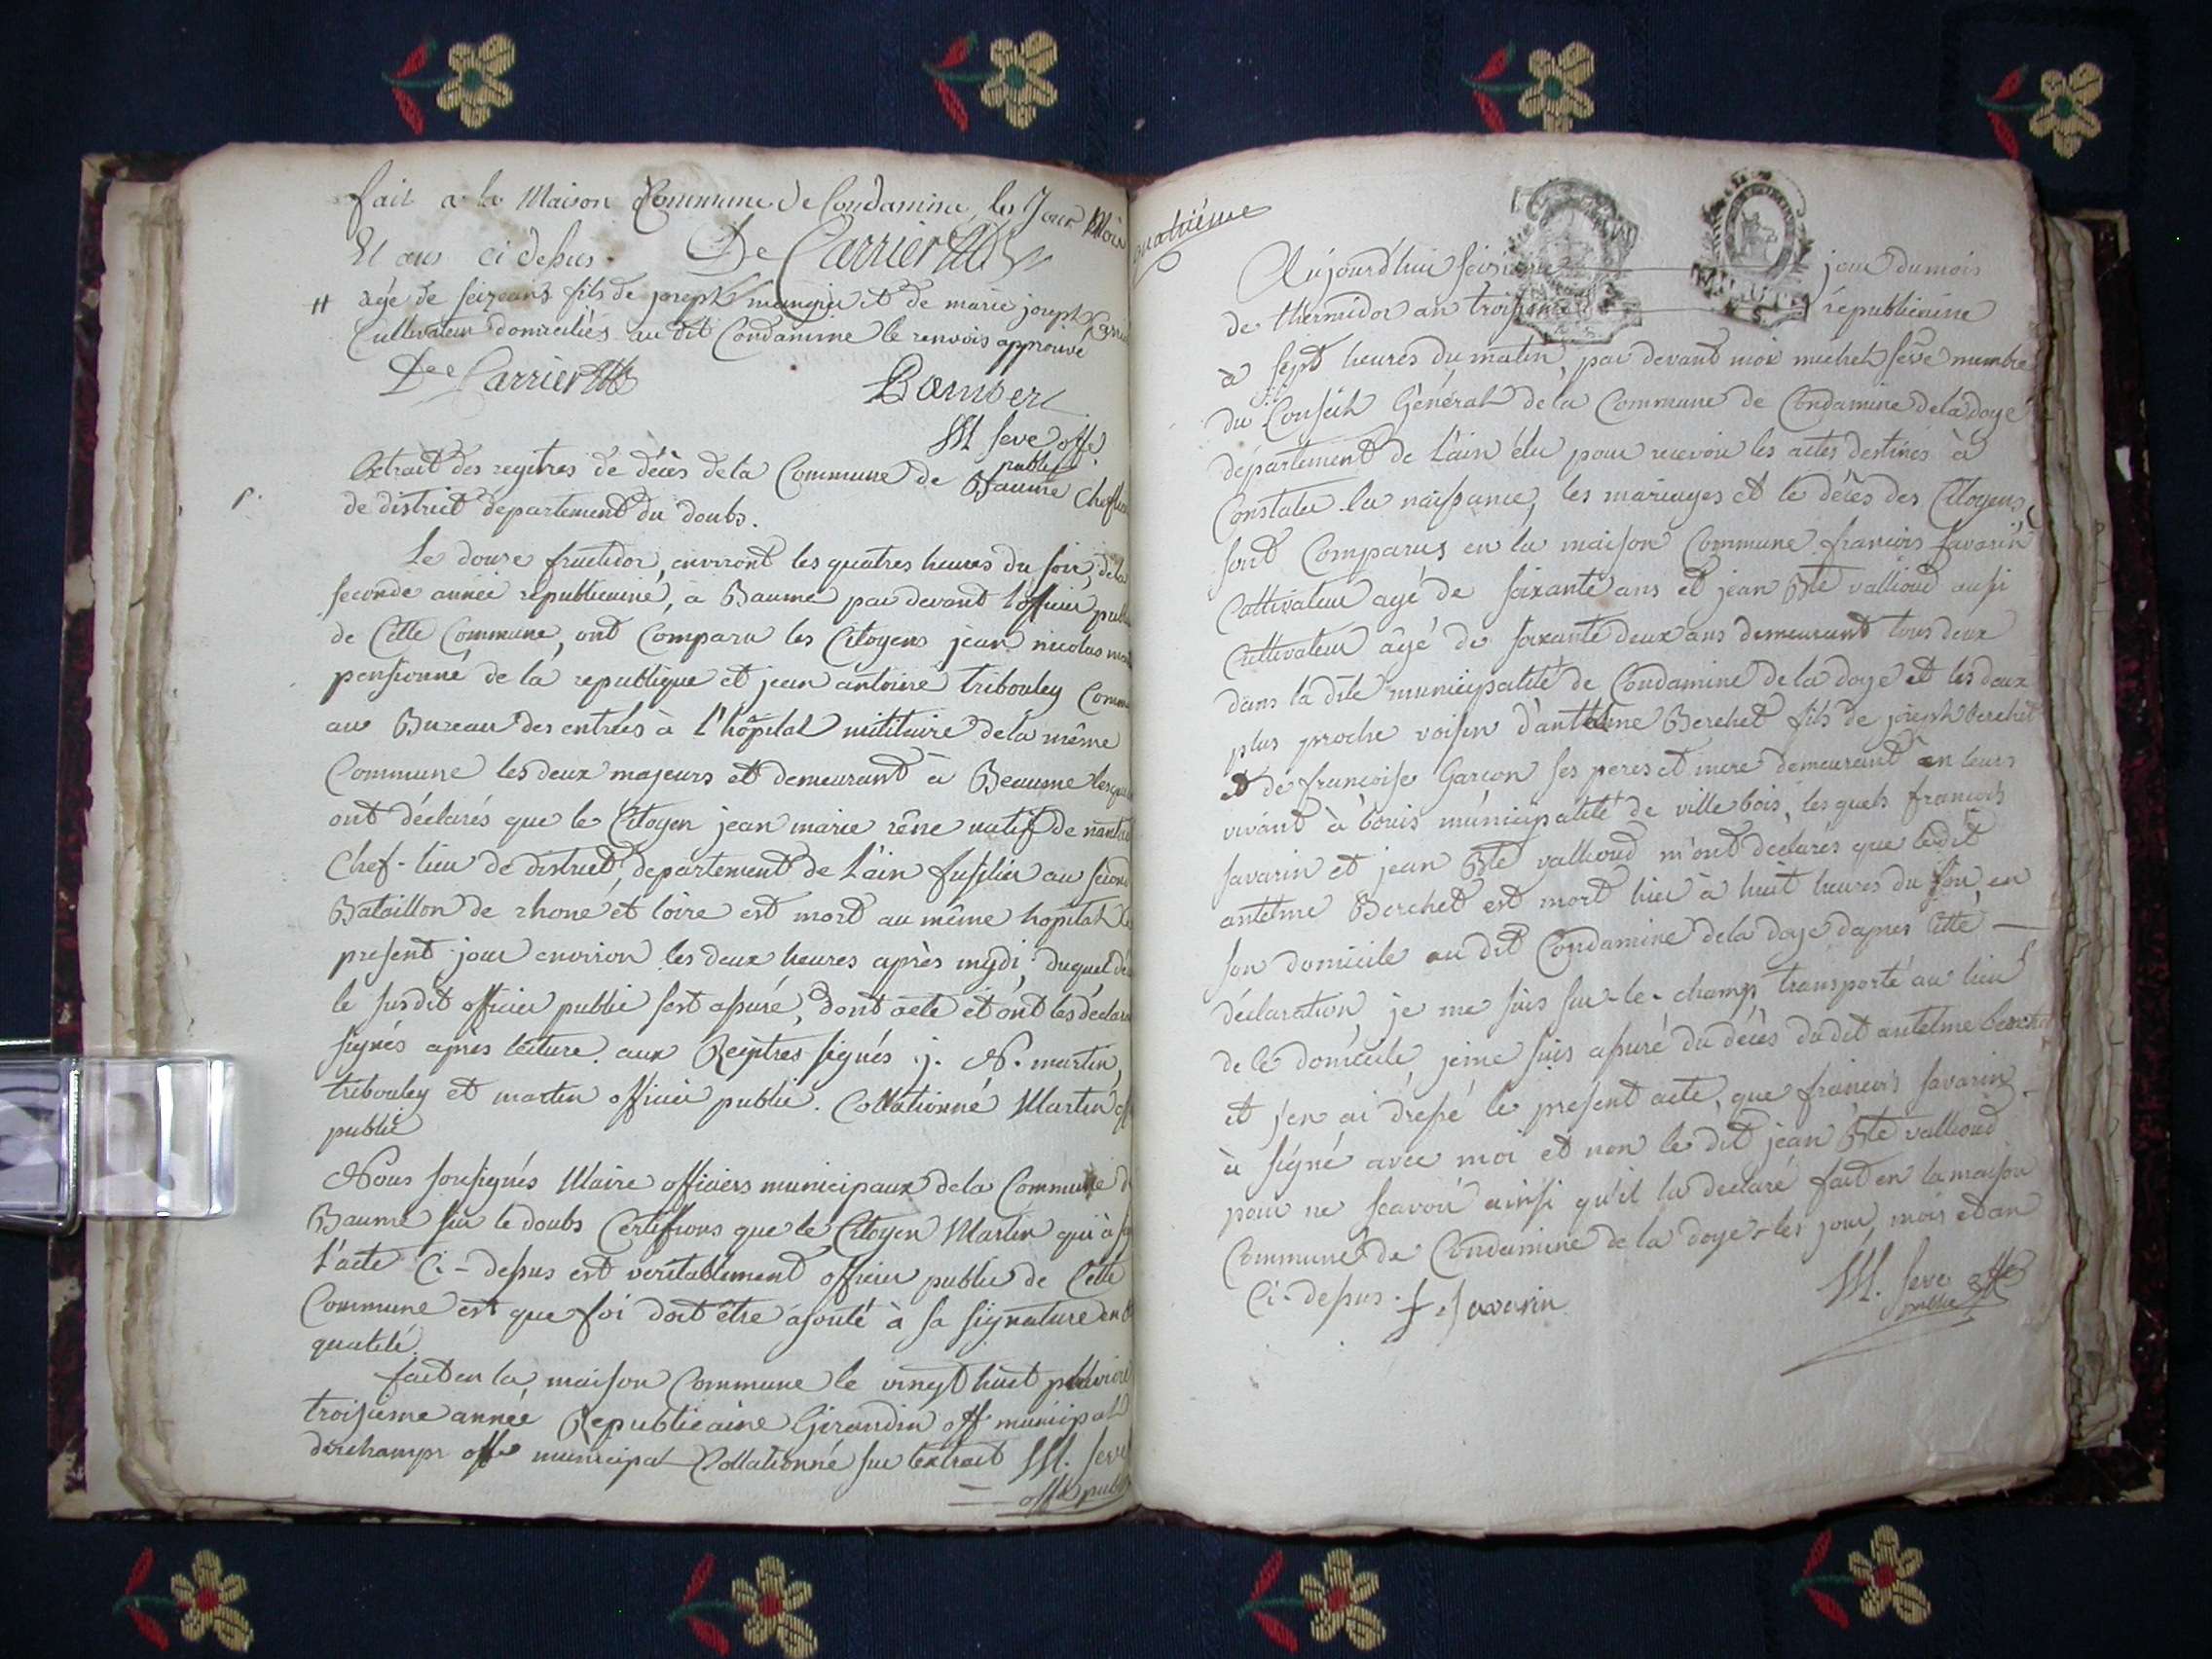 fait a la Maison Commune de Condamine les Jour Mois
Et ans ci dessus. De Carrier
# agé de seize ans fils de joseph mangier et de marie joseph
Cultivateur domiciliés au dit Condamine le renvois approuvé
De Carrier
M Seve offe.
public
Extrait des regitres de décès de la Commune de Baume Chef lieu
de district departement du doubs.
Le douse fructidor, environt les quatres heures du soir, de la
seconde année republicaine, à Baume par devant l'officier public
de Cette Commune, ont Comparu les Citoyens jean nicolas
pensionné de la republique et jean antoine tribouley Comm
au Bureau des entrées à l'hôpital militaire de la même
Commune les deux majeurs et demeurant à Beaume lesquels
ont déclarés que le Citoyen jean marie rêne natif de nantua
Chef-lieu de district, departement de L'ain fusilier au second
Bataillon de rhone et loire est mort au même hopital le
present jour environ les deux heures après mydi: duquel dé
le susdit officier public s'est assuré, dont acte et ont les déclara
signés après lecture. aux Regitres signés j. N. martin,
tribouley et martin officier public. Collationné Martin off
public
Nous soussignés Maire officiers municipaux de la Commune de
Baume sur le doubs Certifions que le Citoyen Martin qui à
l'acte Ci-dessus est veritablement officier public de Cette
Commune est que foi doit être ajouté à sa signature en
qualité.
fait en la maison Commune le vingt huit pluviose
troisieme année Republicaine Girandin off municipal
deschamps offe municipal Collationné sur l'extrait M. Seve
offe public
quatriéme
Aujourd'hui seizieme jour du mois
de thermidor an troisieme républicaine
à sept heures du matin, par devant moi michel Seve membre
du Conseil Général de la Commune de Condamine de la doye
département de L'ain élu pour recevoir les actes destinés à
Constater la naissance, les mariages et le décès des Citoyens,
sont Comparus en la maison Commune françois savarin
Cultivateur agé de soixante ans et jean Bte vallioud aussi
Cultivateur agé de soixante deux ans demeurant tous deux
dans la dite municipalité de Condamine de la doye et les deux
plus proche voisin d'antelme Berchet fils de joseph berchet
et de françoise Garcon ses peres et mere demeurant en leurs
vivant à bouis municipalité de ville bois, lesquels françois
savarin et jean Bte vallioud m'ont déclarés que ledit
antelme Berchet est mort hier à huit heures du soir, en
son domicile au dit Condamine de la doye d'apres Cette
déclaration, je me suis sur-le-champ, transporté au lieu
de le domicile, je me suis assuré du décès dudit antelme berchet
et j'en ai dressé le present acte, que françois savarin
à signé avec moi et non le dit jean Bte vallioud
pour ne scavoir ainsi qu'il la declaré fait en la maison
Commune de Condamine de la doye les jour, mois et an
Ci-dessus. f. savarin
M. Seve offe
public